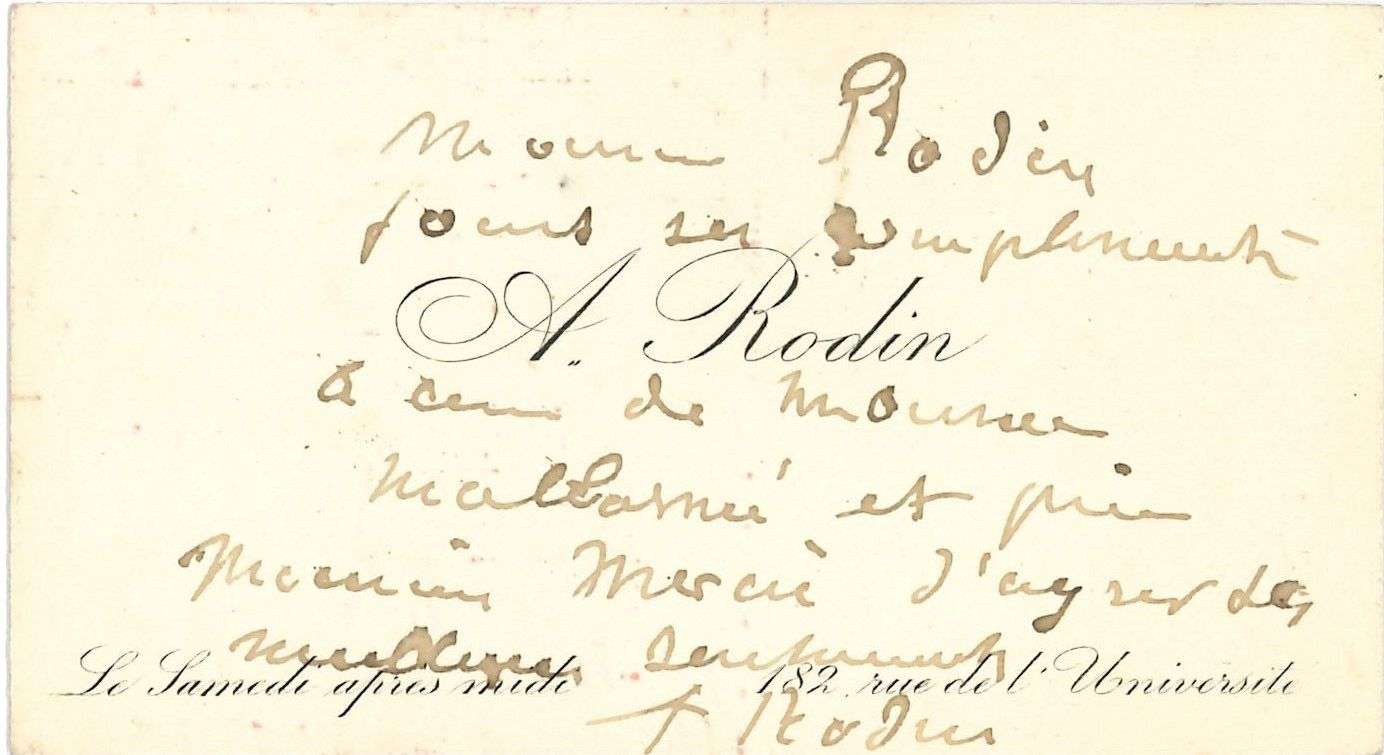 Monsieur Rodin
joint ses compliments
A. Rodin
à ceux de Monsieur
et prie
Monsieur Mercié d'agréer les
meilleurs sentiments
Le Samedi après midi 182, rue de l'Université
A Rodin